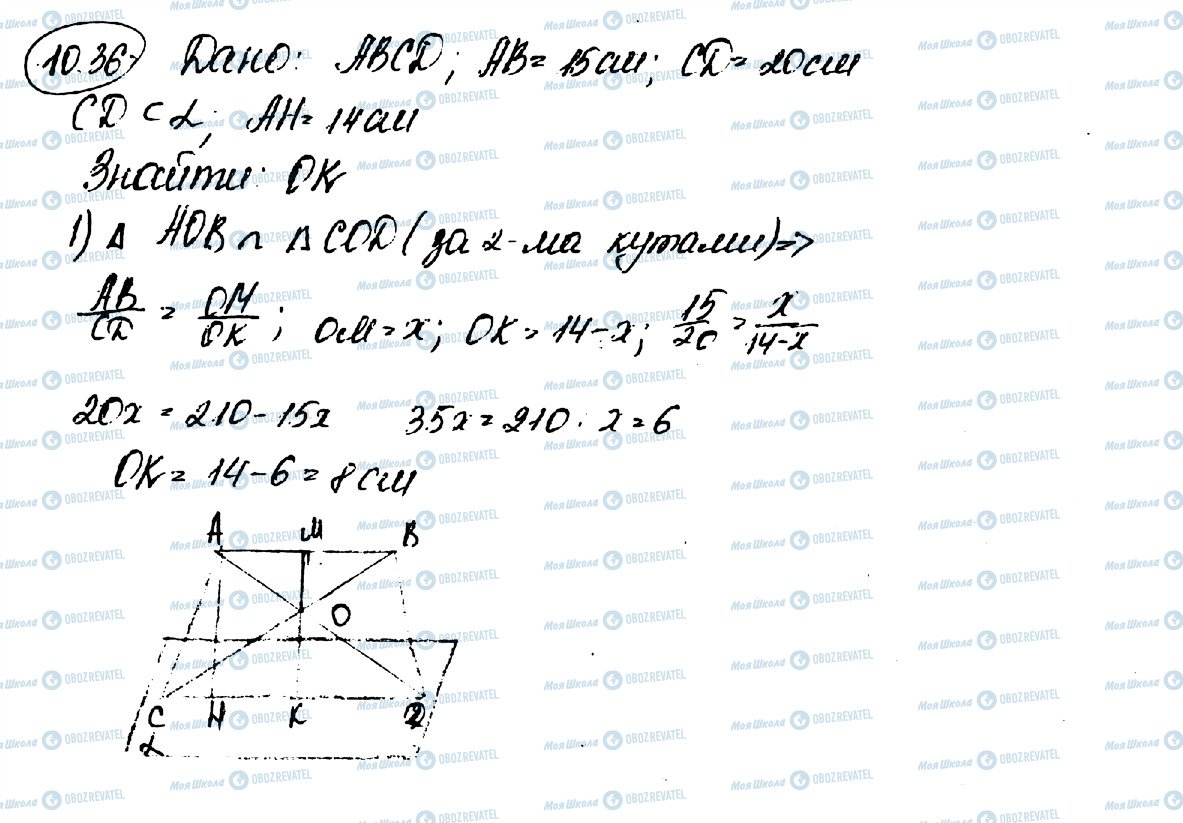 10.36. Дано: ABCD; AB = 15 см; CD = 20 см
CD ⊂ α; AH = 14 см
Знайти: OK
1) Δ AOB ∩ Δ COD (за 2-ма кутами) =>
AB/CD = OM/OK; OM = x; OK = 14 - x; 15/20 = x/14-x
20x = 210 - 15x 35x = 210. x = 6
OK = 14 - 6 = 8 см
A M B
O
C H K D
α